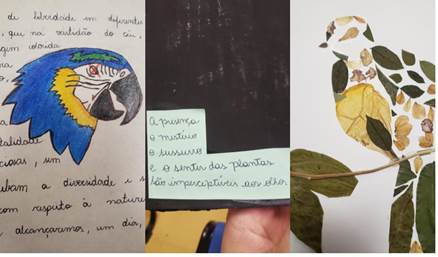 de liberdade em diferentes
, que na vastidão do céu,
gem colorida
ra
talidade
ciosas, um
ubam a diversidade e s
com respeito à nature
alcançaremos, um dia,
A presença
o mistério
o sussurro
e o sentir das plantas
são imperceptíveis aos olhos